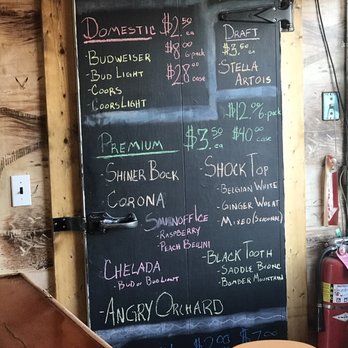 Domestic $2.50 ea
$8.00 6-pack
$28.00 case
-Budweiser
-Bud Light
-Coors
-Coors Light
Draft
$3.50 ea
Stella
Artois
$12.00 6-pack
Premium $3.50 ea $40.00 case
-Shiner Bock
-Corona
Smirnoff Ice
-Raspberry
-Peach Bellini
-Chelada
-Bud or Bud Light
-Angry Orchard
-Shock Top
-Belgian White
-Ginger Wheat
-Mixed (Seasonal)
-Black Tooth
-Saddle Bronc
-Bomber Mountain